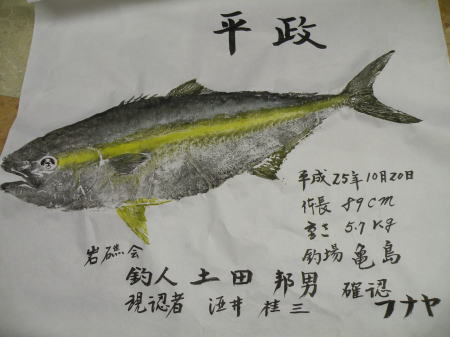 平政
平成25年10月20日
体長 89cm
重さ 5.7Kg
釣場 亀島
岩礁会
釣人 土田 邦男 確認
現認者 酒井 桂三 フナヤ